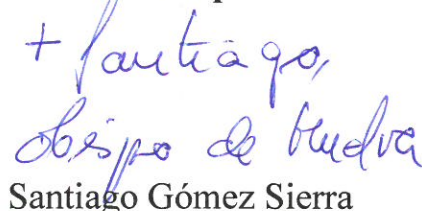 + Santiago,
obispo de Huelva
Santiago Gómez Sierra